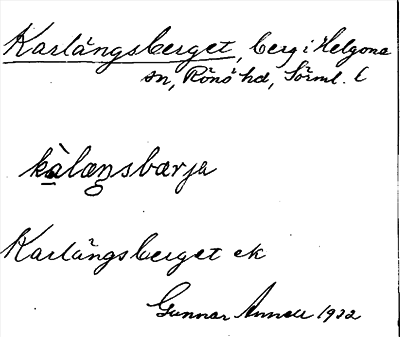 Karlängsberget, berg i Helgona
sn, Rönö hd, Sörml. l
kàlæŋsbærja
Karlängsberget ek
Gunnar Annell 1922